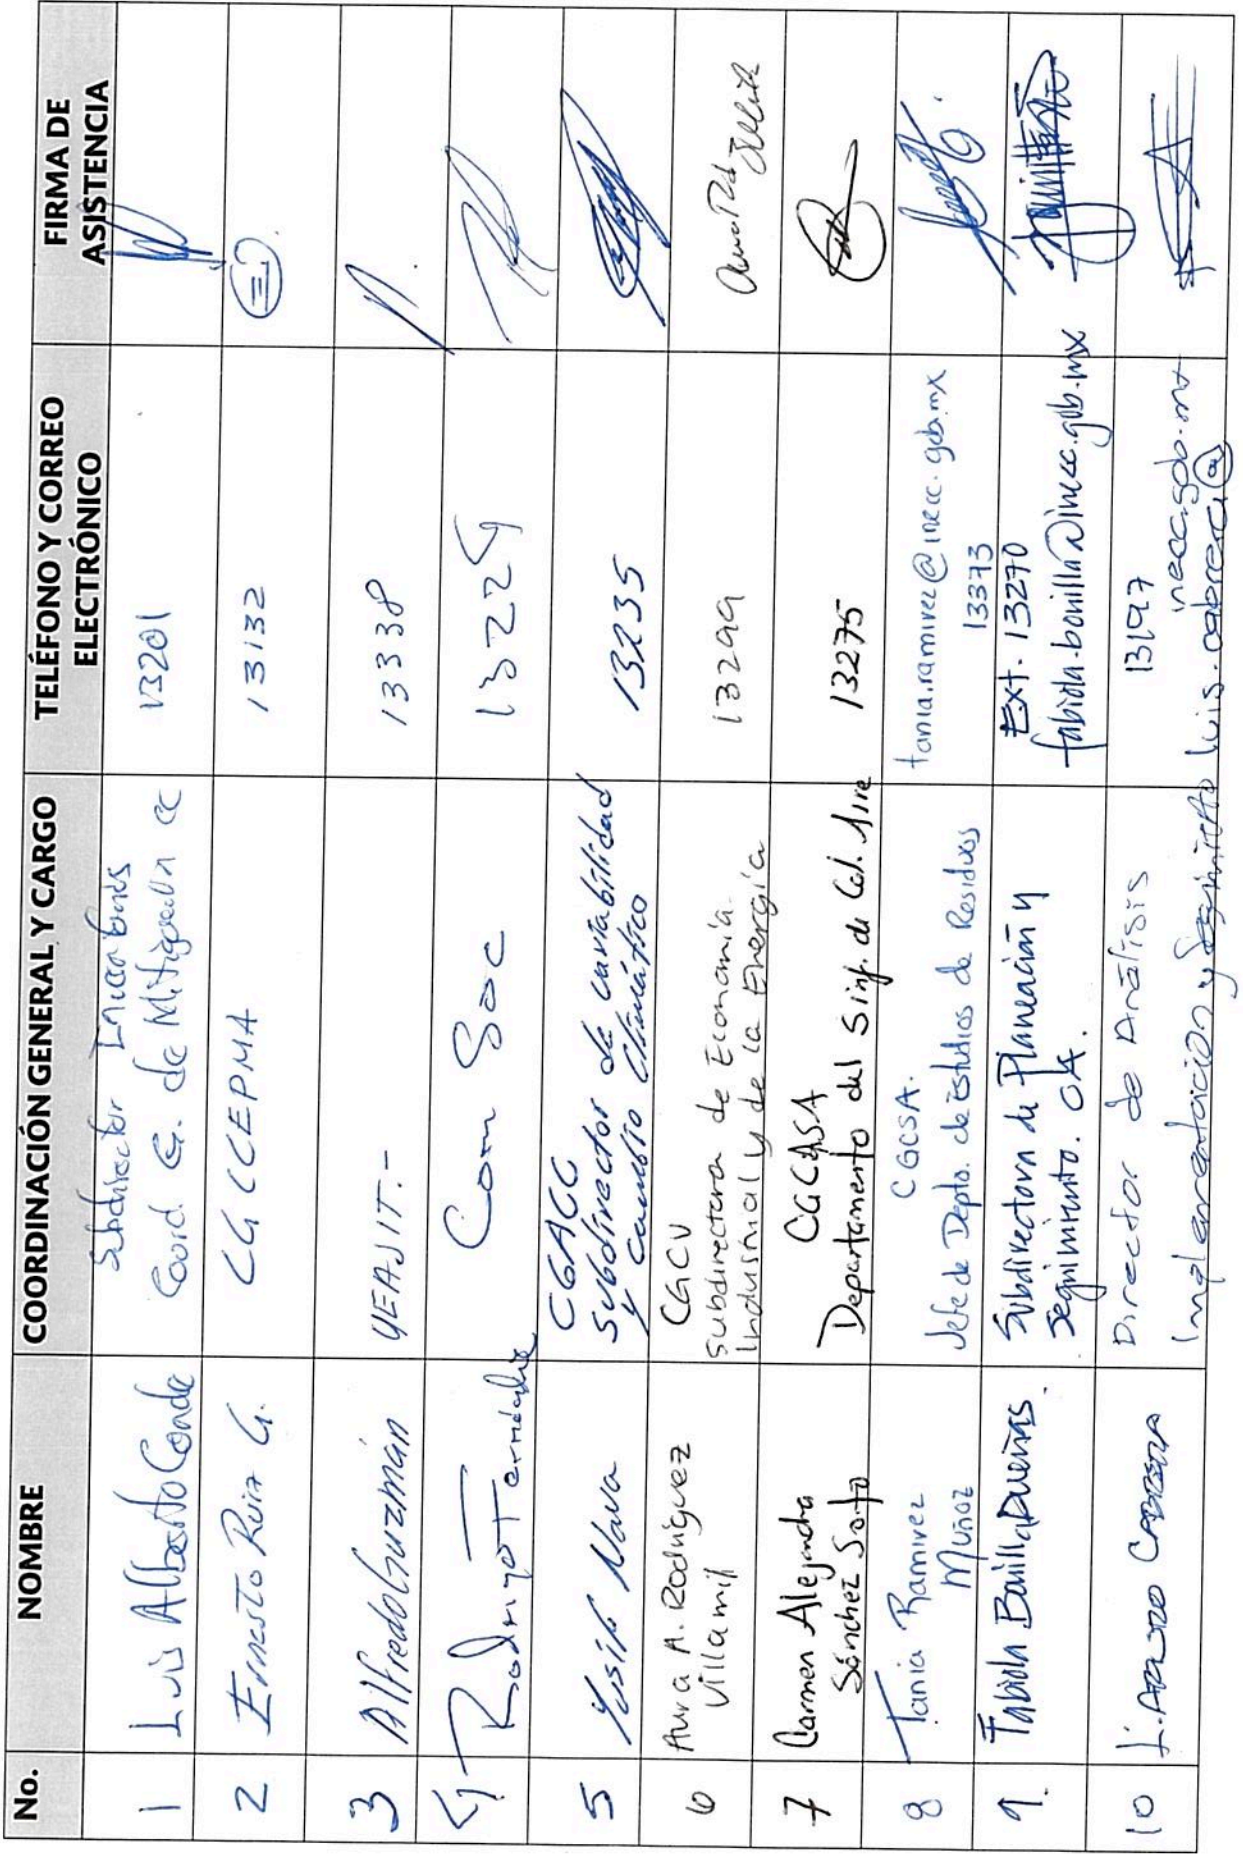 No. NOMBRE COORDINACIÓN GENERAL Y CARGO TELÉFONO Y CORREO ELECTRÓNICO FIRMA DE ASISTENCIA
1 Luis Alberto Conde
Subdirector
Coord G. de Mitigación CC
13201
2 Ernesto Ruiz G.
CGCCEPMA
13132
3 Alfredo Guzmán
UEAJIT.-
13338
4 Rodrigo
Com Soc
13229
5 Yusif Nava
CGACC
Subdirector de variabilidad
y cambio climático
13235
6 Aura A. Rodríguez
Villamil
CGCV
Subdirectora de Economía
Industrial y de la Energía
13299
7 Carmen Alejandra
Sánchez Soto
CGCASA
Departamento del Sinf. de Cal. Aire
13275
8 Tania Ramirez
Muñoz
CGCSA.
Jefe de Depto. de Estudios de Residuos
tania.ramirez@inecc.gob.mx
13373
9. Fabiola Bonilla Dueñas.
Subdirectora de Planeación y
Seguimiento. OA.
Ext. 13270
fabiola.bonilla@inecc.gob.mx
10 L. ARTURO CABRERA
Director de Análisis
Implementación y Seguimiento
13197
luis.cabrera@
inecc.gob.mx